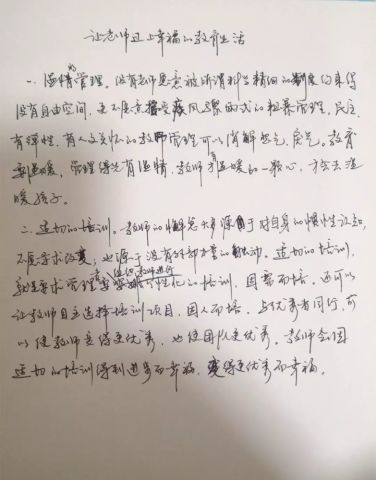 让老师过上幸福的教育生活
一、温情的管理。没有老师愿意被所谓科学精细的制度约束得
没有自由空间，更不愿意接受疾风骤雨式的粗暴管理。民主、
有弹性、有人文关怀的教师管理可以消解怨气、戾气。教育
要温暖，管理得先有温情。教师有温暖的一颗心，才会去温
暖孩子。
二、适切的培训。教师的懈怠大源于对自身的惯性认知，
不愿寻求改变；也源于没有外部力量的触动。适切的培训，
就是要求管理者组织教师进行个性化的培训，因需而培。还可以
让教师自主选择培训项目，因人而培。与优秀者同行，可
以使教师变得更优秀，也使团队更优秀。教师会因
适切的培训得到进步而幸福，变得更优秀而幸福。